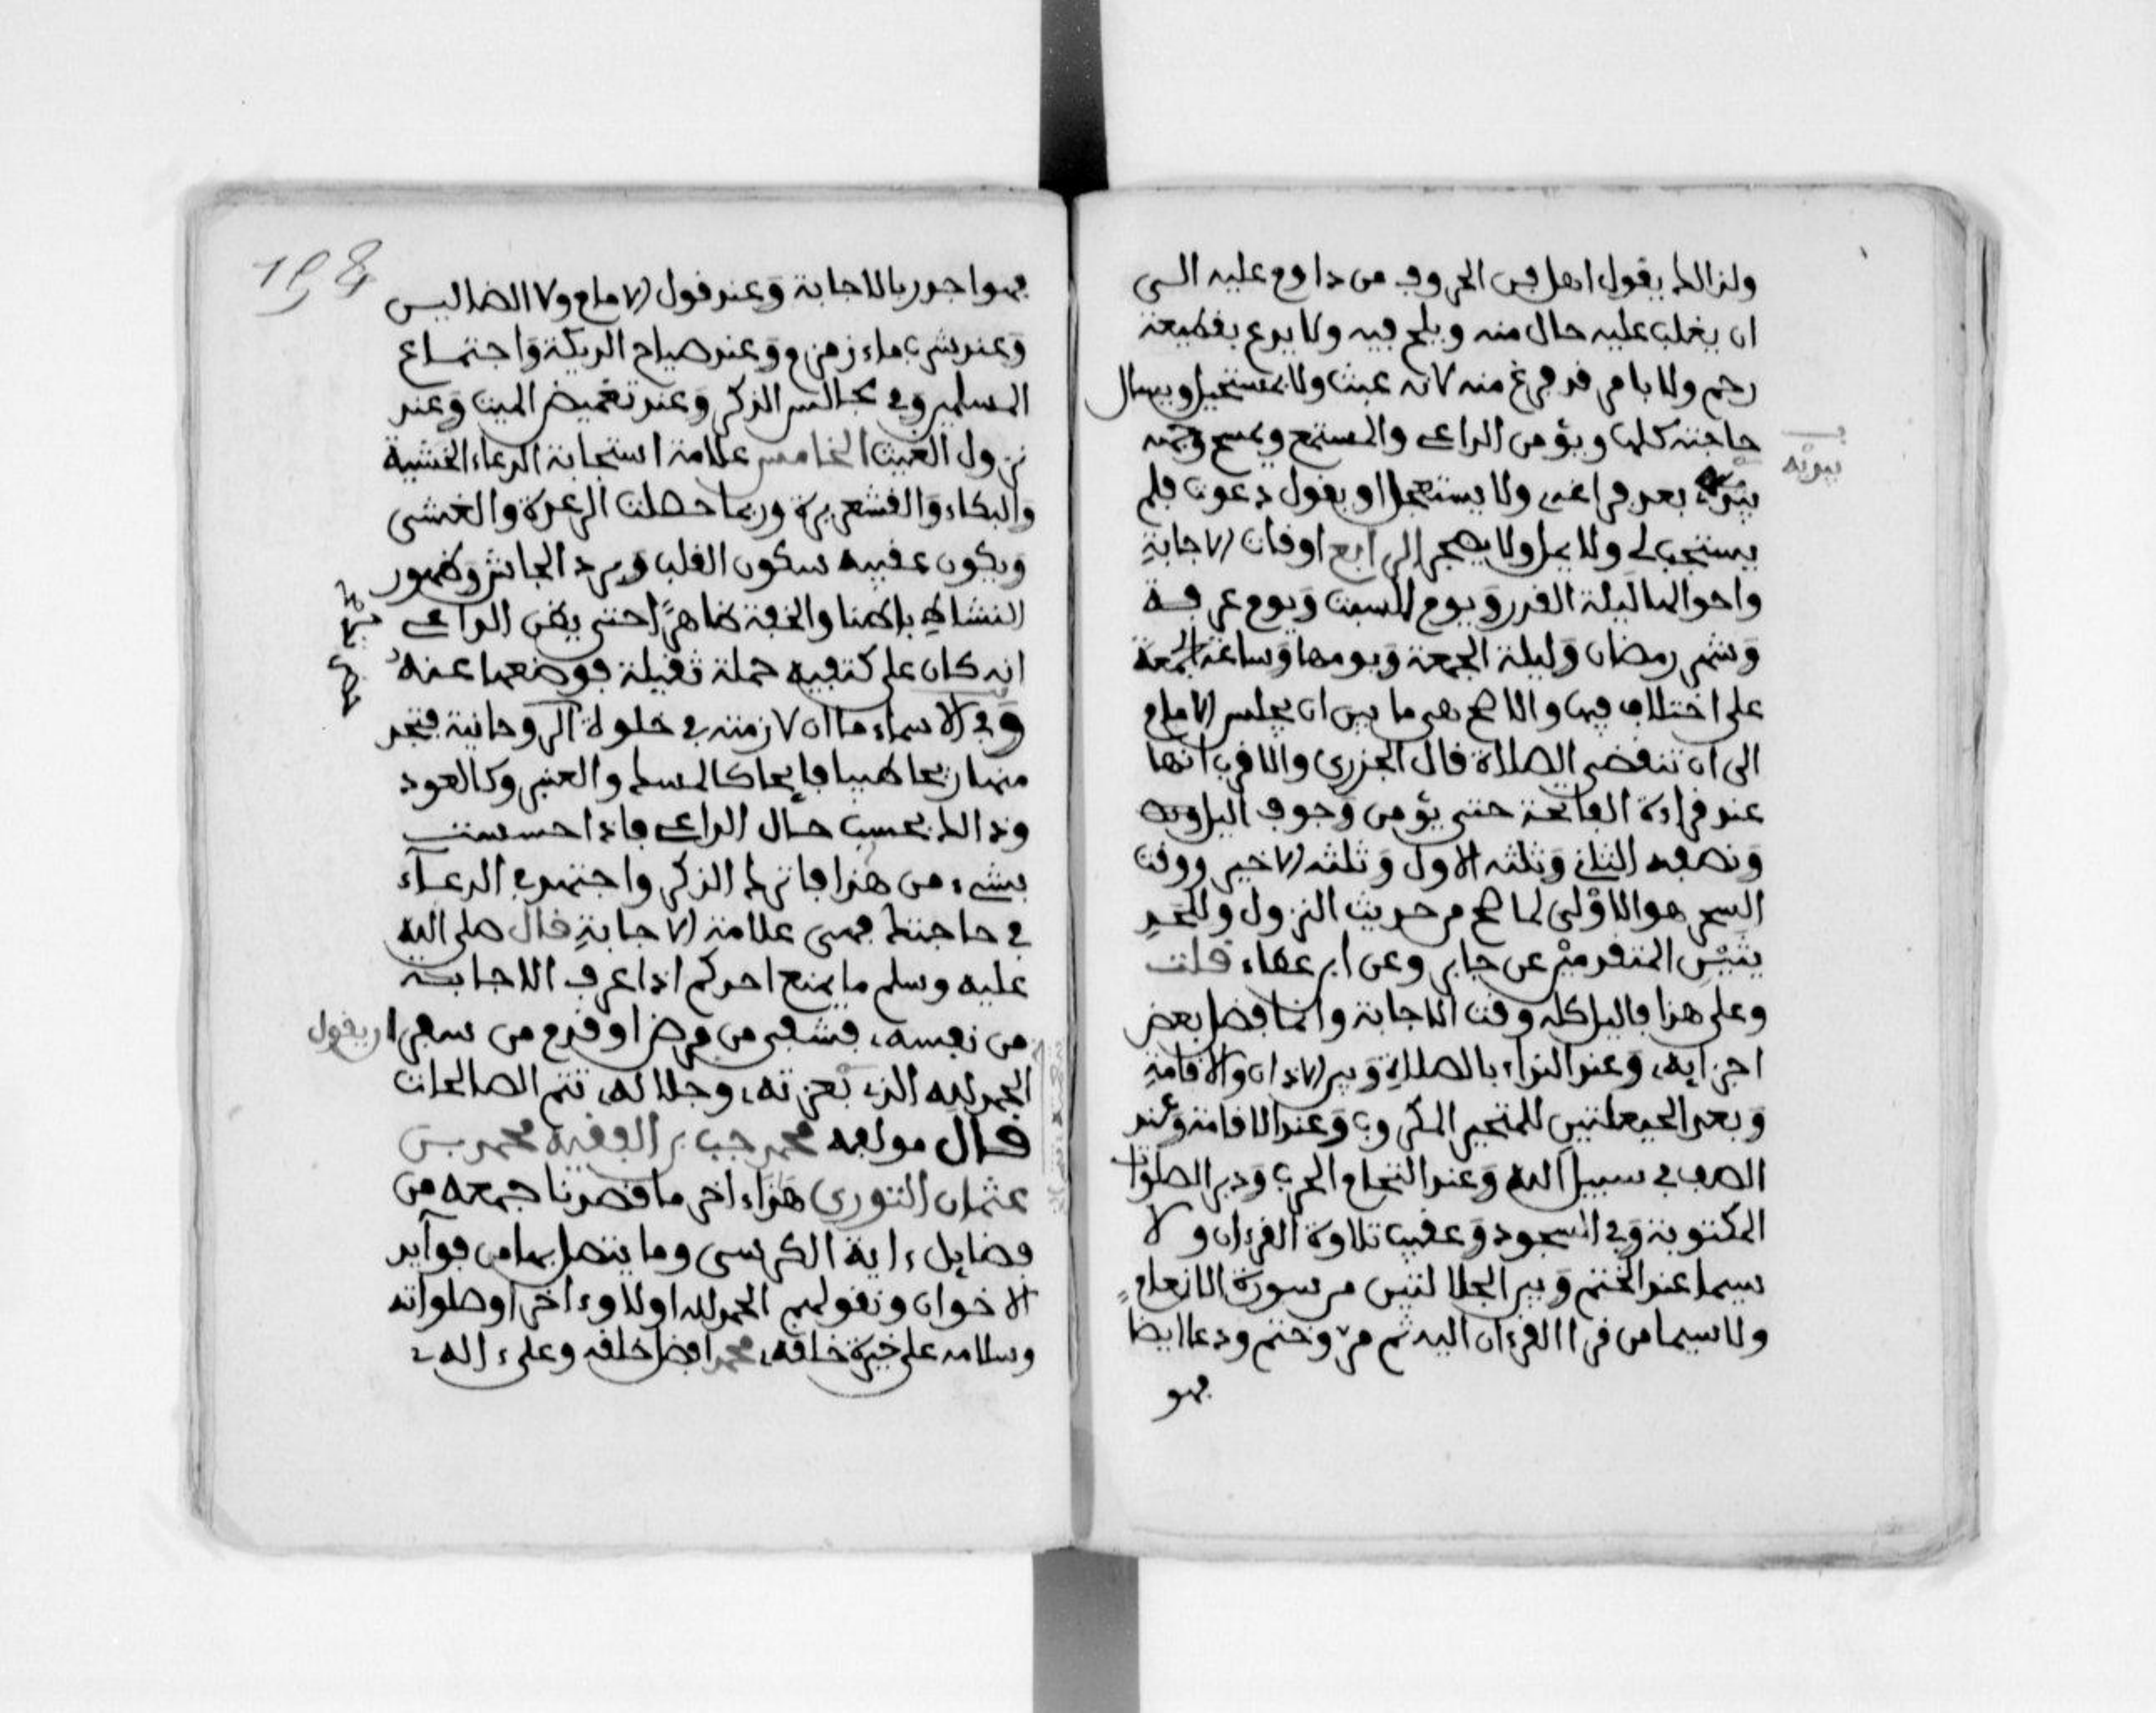 ولذالك يقول اهل فن الحروف من داوم عليه الى
ان يغلب عليه حال منه ويلح فيه ولا يدع بقطيعة
رحم ولا بامر قد فرغ منه لانه عبث ولا بمستحيل ويسال
حاجته كلها ويؤمن الداعي والمستمع ويمسح وجهه
بيديه بعد فراغه ولا يستعجل او يقول دعوت فلم
يستجب لي ولا يمل ولا يضجر الرابع اوقات الاجابة
واحوالها ليلة القدر ويوم السبت ويوم عرفة
وشهر رمضان وليلة الجمعة ويومها وساعة الجمعة
على اختلاف فيها والاصح هى ما بين ان يجلس الامام
الى ان تنقضي الصلاة قال الجزري والاقرب انها
عند قراءة الفاتحة حتى يؤمن وجوف اليل
ونصفه الثاني وثلثه الاول وثلثه الاخير ووقت
السحر هو الاولى لما صح من حديث النزول وللحد
يثين المتقدمين عن جابر وعن ابن عطاء قلت
وعلى هذا فاليل كله وقت الاجابة وانما فضل بعض
اجزايه وعند النداء بالصلاة وبين الاذان والاقامة
وبعد الحيعلتين للمتحير المكروب وعند الاقامة وعند
الصف في سبيل الله وعند التحام الحرب ودبر الصلوات
المكتوبة وفي السجود وعقب تلاوة القرءان ولا
سيما عند الختم وبين الجلالتين من سورة الانعام
ولا سيما من قرا القرءان اليه ثم مر وختم ودعا ايضا
فهو
فهو اجدر بالاجابة وعند قول الامام ولا الضالين
وعند شرب ماء زمزم وعند صياح الديكة واجتماع
المسلمين وفي مجالس الذكر وعند تغميض الميت وعند
نزول الغيث الخامس علامة استجابة الدعاء الخشية
والبكاء والقشعريرة وربما حصلت الرعدة والغشى
ويكون عقبه سكون القلب وبرد الجاش وظهور
النشاط باطنا والخفة ظاهرا حتى يظن الداعي
انه كان على كتفيه حملة ثقيلة فوضعها عنه
وفي الاسماء ما ان لازمته في خلوة الروحانية فتجد
منها ريحا طيبا فايحا كالمسك والعنبر وكالعود
وذالك بحسب حال الداعي فاذا احسست
بشيء من هذا فاترك الذكر واجتهد في الدعاء
في حاجتك فهى علامة الاجابة قال صلى الله
عليه وسلم ما يمنع احدكم اذا عرف الاجابة
من نفسه فشفى من مرض او قدم من سفر ان يقول
الحمد لله الذي بعزته وجلاله تتم الصالحات
قال مولفه محمد حبيب بن الفقيه محمد بن
عثمان التوري هذا ءاخر ما قصدنا جمعه من
فضايل ءاية الكرسى وما يتصل بها من فوايد
الاخوان ونقول لهم الحمد لله اولا وءاخرا وصلواته
وسلامه على خيرة خلقه محمد افضل خلقه وعلى ءاله